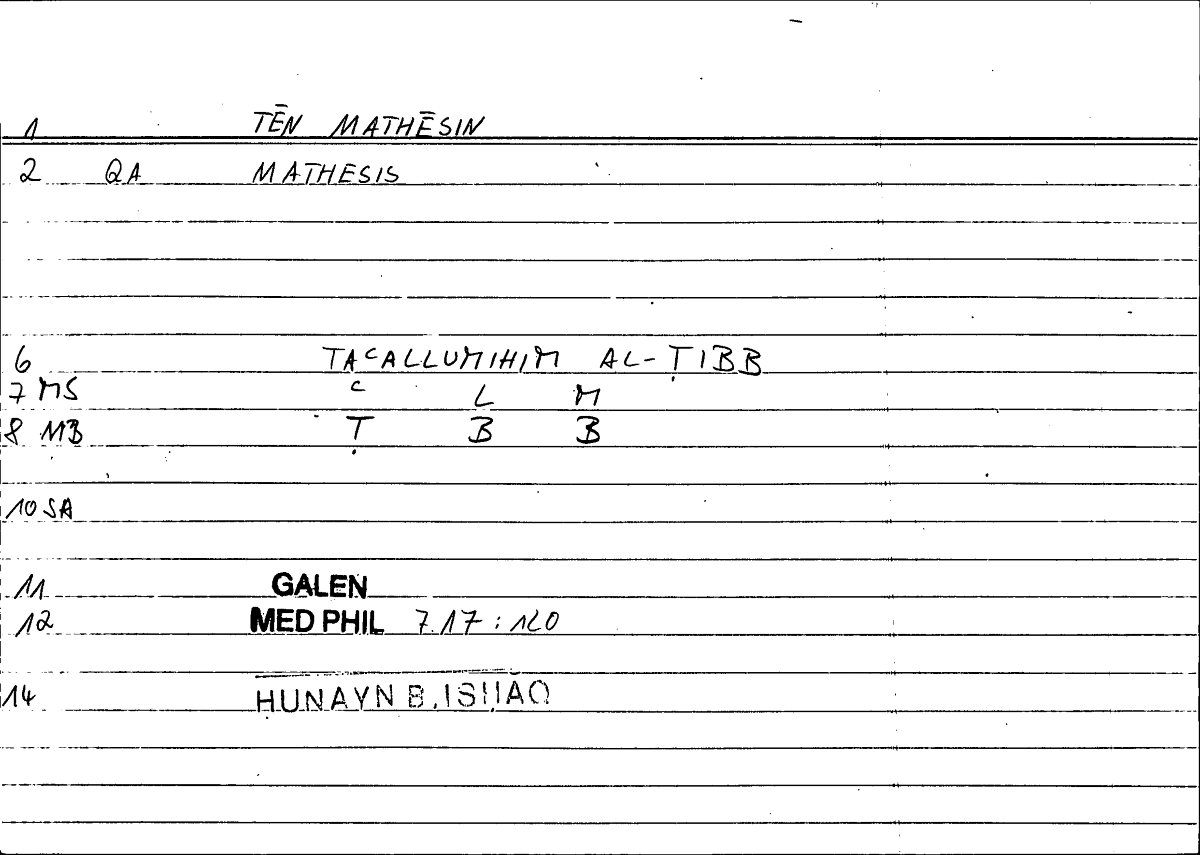 1 TĒN MATHĒSIN
2 QA MATHESIS
6 TAᶜALLUMIHIM AL-ṬIBB
7 MS ᶜ L M
8 MB Ṭ B B
10 SA
11 GALEN
12 MED PHIL 7.17 : 120
14 HUNAYN B. ISḤĀQ